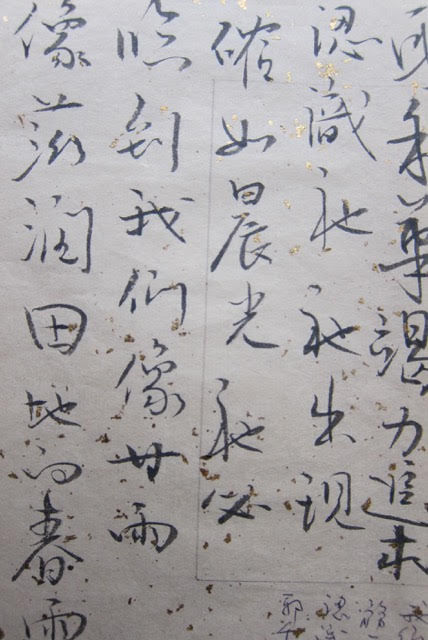 耶和華竭力追求
認識祂祂出現
確如晨光祂必
臨到我們像甘雨
像滋潤田地的春雨